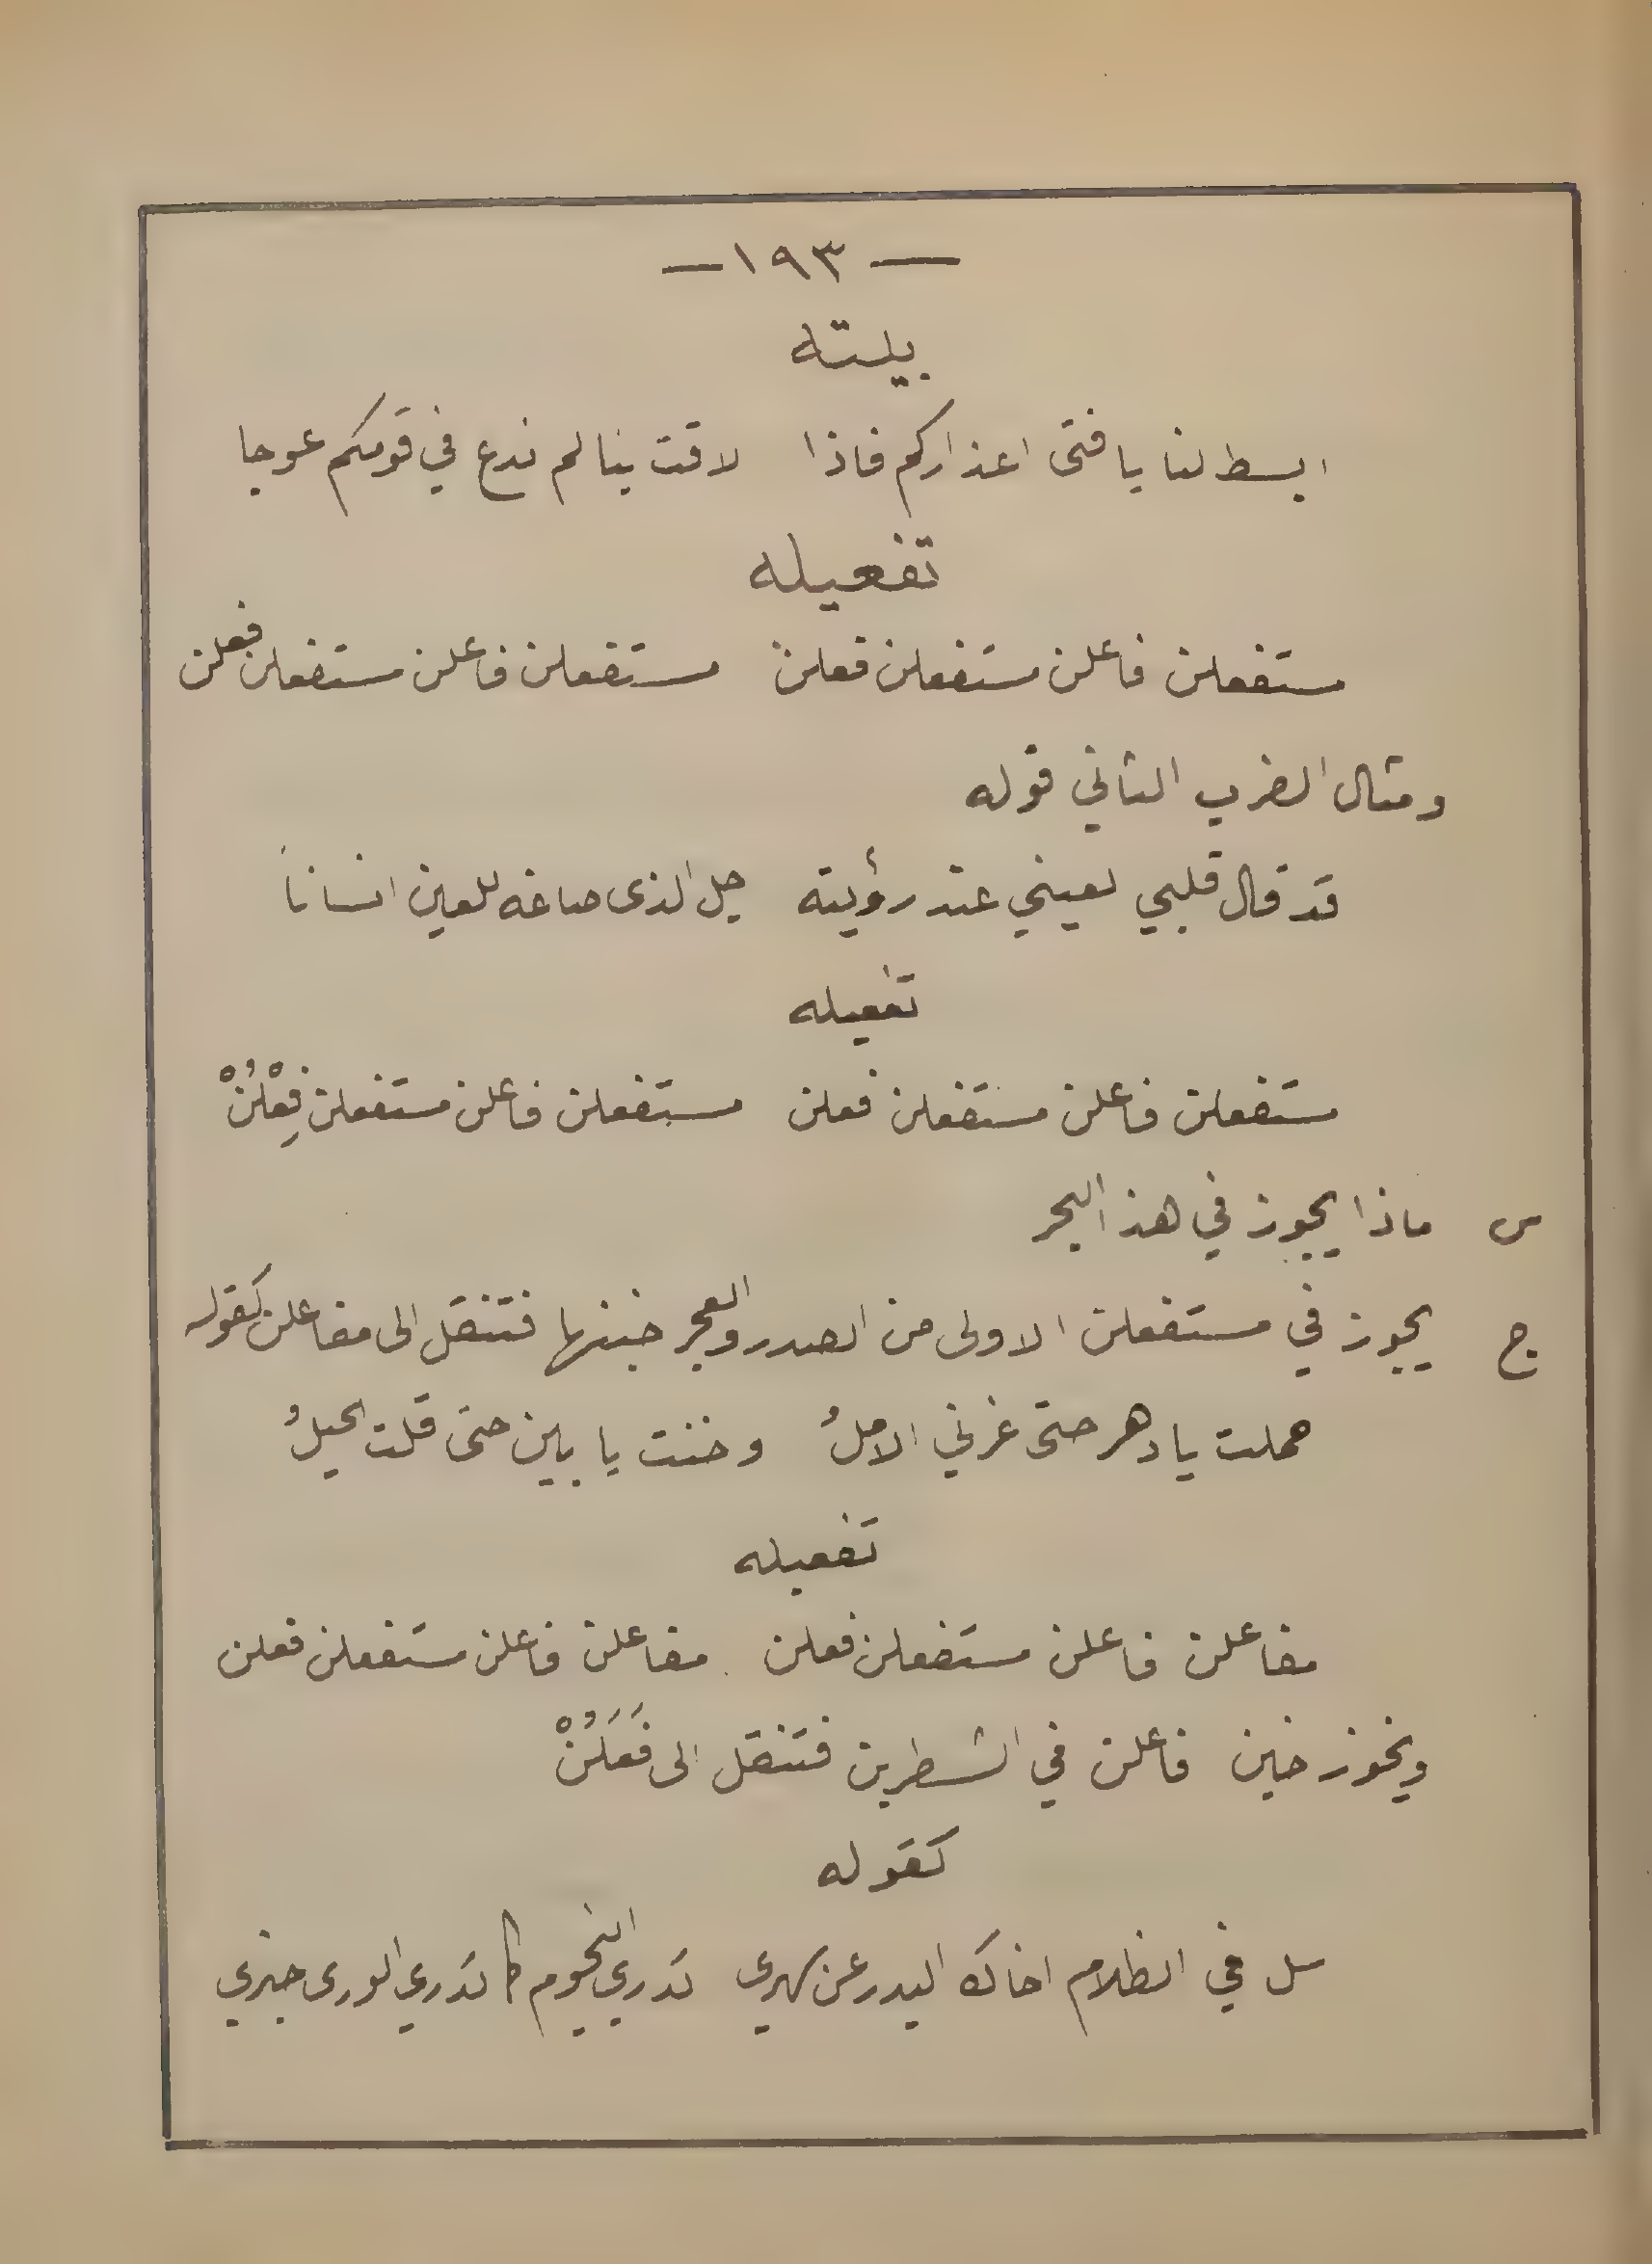 — ١٩٣ —
بيته
ابسط لنا يا فتى اعذاركم فاذا لاقت بنا لم ندع في قومكم عوجا
تفعيله
مستفعلن فاعلن مستفعلن فعلن مستفعلن فاعلن مستفعلن فعلن
ومثال الضرب الثاني قوله
قد قال قلبي لعيني عند رؤيته جل الذى صاغه للعين انساناً
تفعيله
مستفعلن فاعلن مستفعلن فعلن مستفعلن فاعلن مستفعلن فِعْلُنْ
س ماذا يجوز في هذ البحر
ج يجوز في مستفعلن الاولى من الصدر والعجز خبنها فتنقل الى مفاعلن كقوله
مملت يا دهر حتى غرني الاملُ وخنت يا بين حتى قلت الحيلُ
تفعيله
مفاعلن فاعلن مستفعلن فعلن مفاعلن فاعلن مستفعلن فعلن
ويخوز خبن فاعلن في الشطرين فتنقل الى فَعَلُنْ
كقوله
سل في الظلام اخاك البدر عن سهري تدري النجوم كما تدري الورى خبري